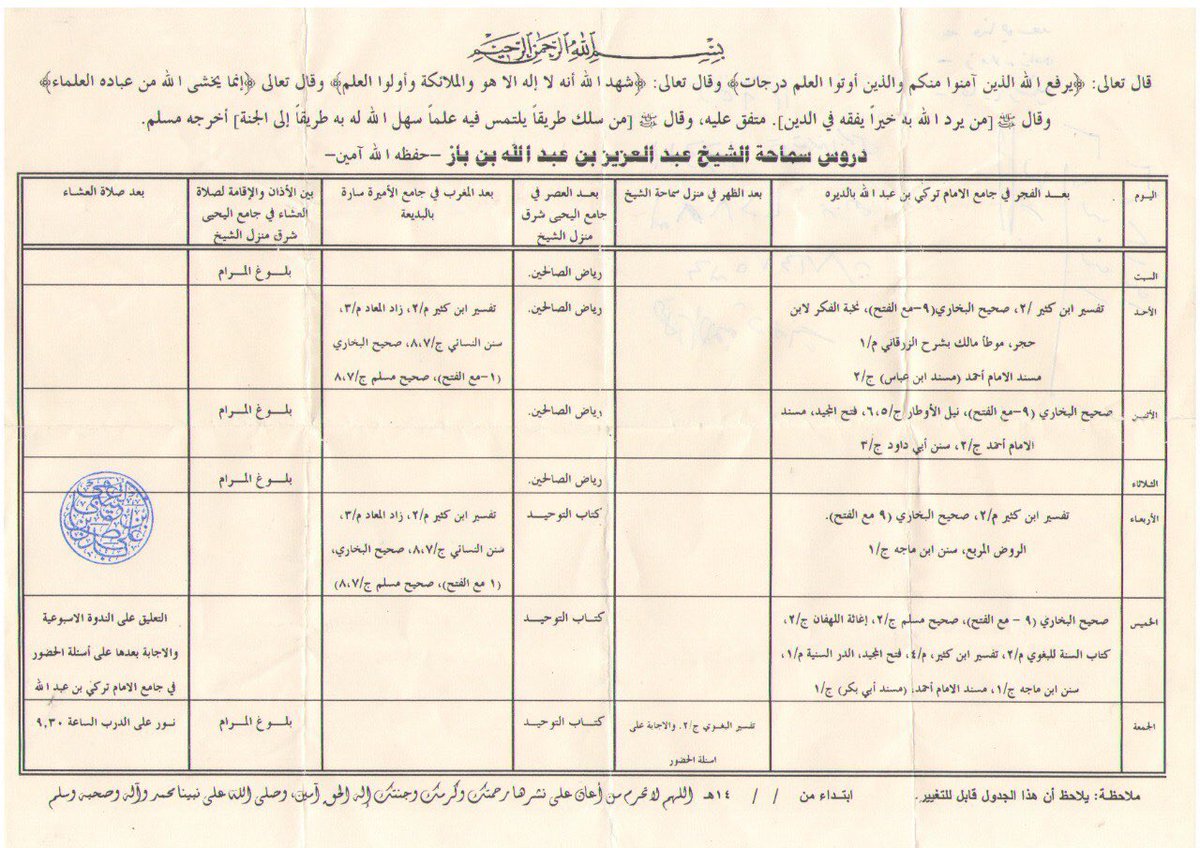 بسم الله الرحمن الرحيم
قال تعالى: ﴿يرفع الله الذين آمنوا منكم والذين أوتوا العلم درجات﴾ وقال تعالى: ﴿شهد الله أنه لا إله الا هو والملائكة وأولوا العلم﴾ وقال تعالى ﴿إنما يخشى الله من عباده العلماء﴾
وقال ﷺ [من يرد الله به خيراً يفقه في الدين]. متفق عليه، وقال ﷺ [من سلك طريقاً يلتمس فيه علماً سهل الله له به طريقاً إلى الجنة] أخرجه مسلم.
دروس سماحة الشيخ عبد العزيز بن عبد الله بن باز -حفظه الله آمين-
اليوم
بعد الفجر في جامع الامام تركي بن عبد الله بالديره
بعد الظهر في منزل سماحة الشيخ
بعد العصر في
جامع اليحيى شرق
منزل الشيخ
بعد المغرب في جامع الأميرة سارة
بالبديعة
بين الأذان والإقامة لصلاة
العشاء في جامع اليحيى
شرق منزل الشيخ
بعد صلاة العشاء
السبت
رياض الصالحين.
بلوغ المرام
الأحد
تفسير ابن كثير /٢، صحيح البخاري(٩-مع الفتح)، نخبة الفكر لابن
حجر، موطأ مالك بشرح الزرقاني م/١
مسند الامام أحمد (مسند ابن عباس) ج/٢
رياض الصالحين.
تفسير ابن كثير م/٢، زاد المعاد م/٣،
سنن النسائي ج/٨،٧، صحيح البخاري
(١-مع الفتح)، صحيح مسلم ج/٨،٧
الأثنين
صحيح البخاري (٩-مع الفتح)، نيل الأوطار ج/٦،٥، فتح المجيد، مسند
الامام أحمد ج/٢، سنن أبي داود ج/٣
رياض الصالحين.
بلوغ المرام
الثلاثاء
رياض الصالحين.
بلوغ المرام
الأربعاء
تفسير ابن كثير م/٢، صحيح البخاري (٩ مع الفتح).
الروض المربع، سنن ابن ماجه ج/١
كتاب التوحيد
تفسير ابن كثير م/٢، زاد المعاد م/٣،
سنن النسائي ج/٨،٧، صحيح البخاري،
(١ مع الفتح)، صحيح مسلم ج/٨،٧)
الخميس
صحيح البخاري (٩ - مع الفتح)، صحيح مسلم ج/٢، إغاثة اللهفان ج/٢،
كتاب السنة للبغوي م/٢، تفسير ابن كثير، م/٤، فتح المجيد، الدرر السنية م/١،
سنن ابن ماجه ج/١، مسند الامام أحمد، (مسند أبي بكر) ج/١
كتاب التوحيد
التعليق على الندوة الاسبوعية
والاجابة بعدها على أسئلة الحضور
في جامع الامام تركي بن عبد الله
الجمعة
تفسير البغوي ج/٢. والاجابة على
اسئلة الحضور
كتاب التوحيد
بلوغ المرام
نور على الدرب الساعة ٩,٣٠
ملاحظة: يلاحظ أن هذا الجدول قابل للتغيير. ابتداء من / / ١٤هـ اللهم لا تحرم من أعان على نشرها رحمتك وكرمك وجنتك إله الحق آمين، وصلى الله على نبينا محمد وآله وصحبه وسلم